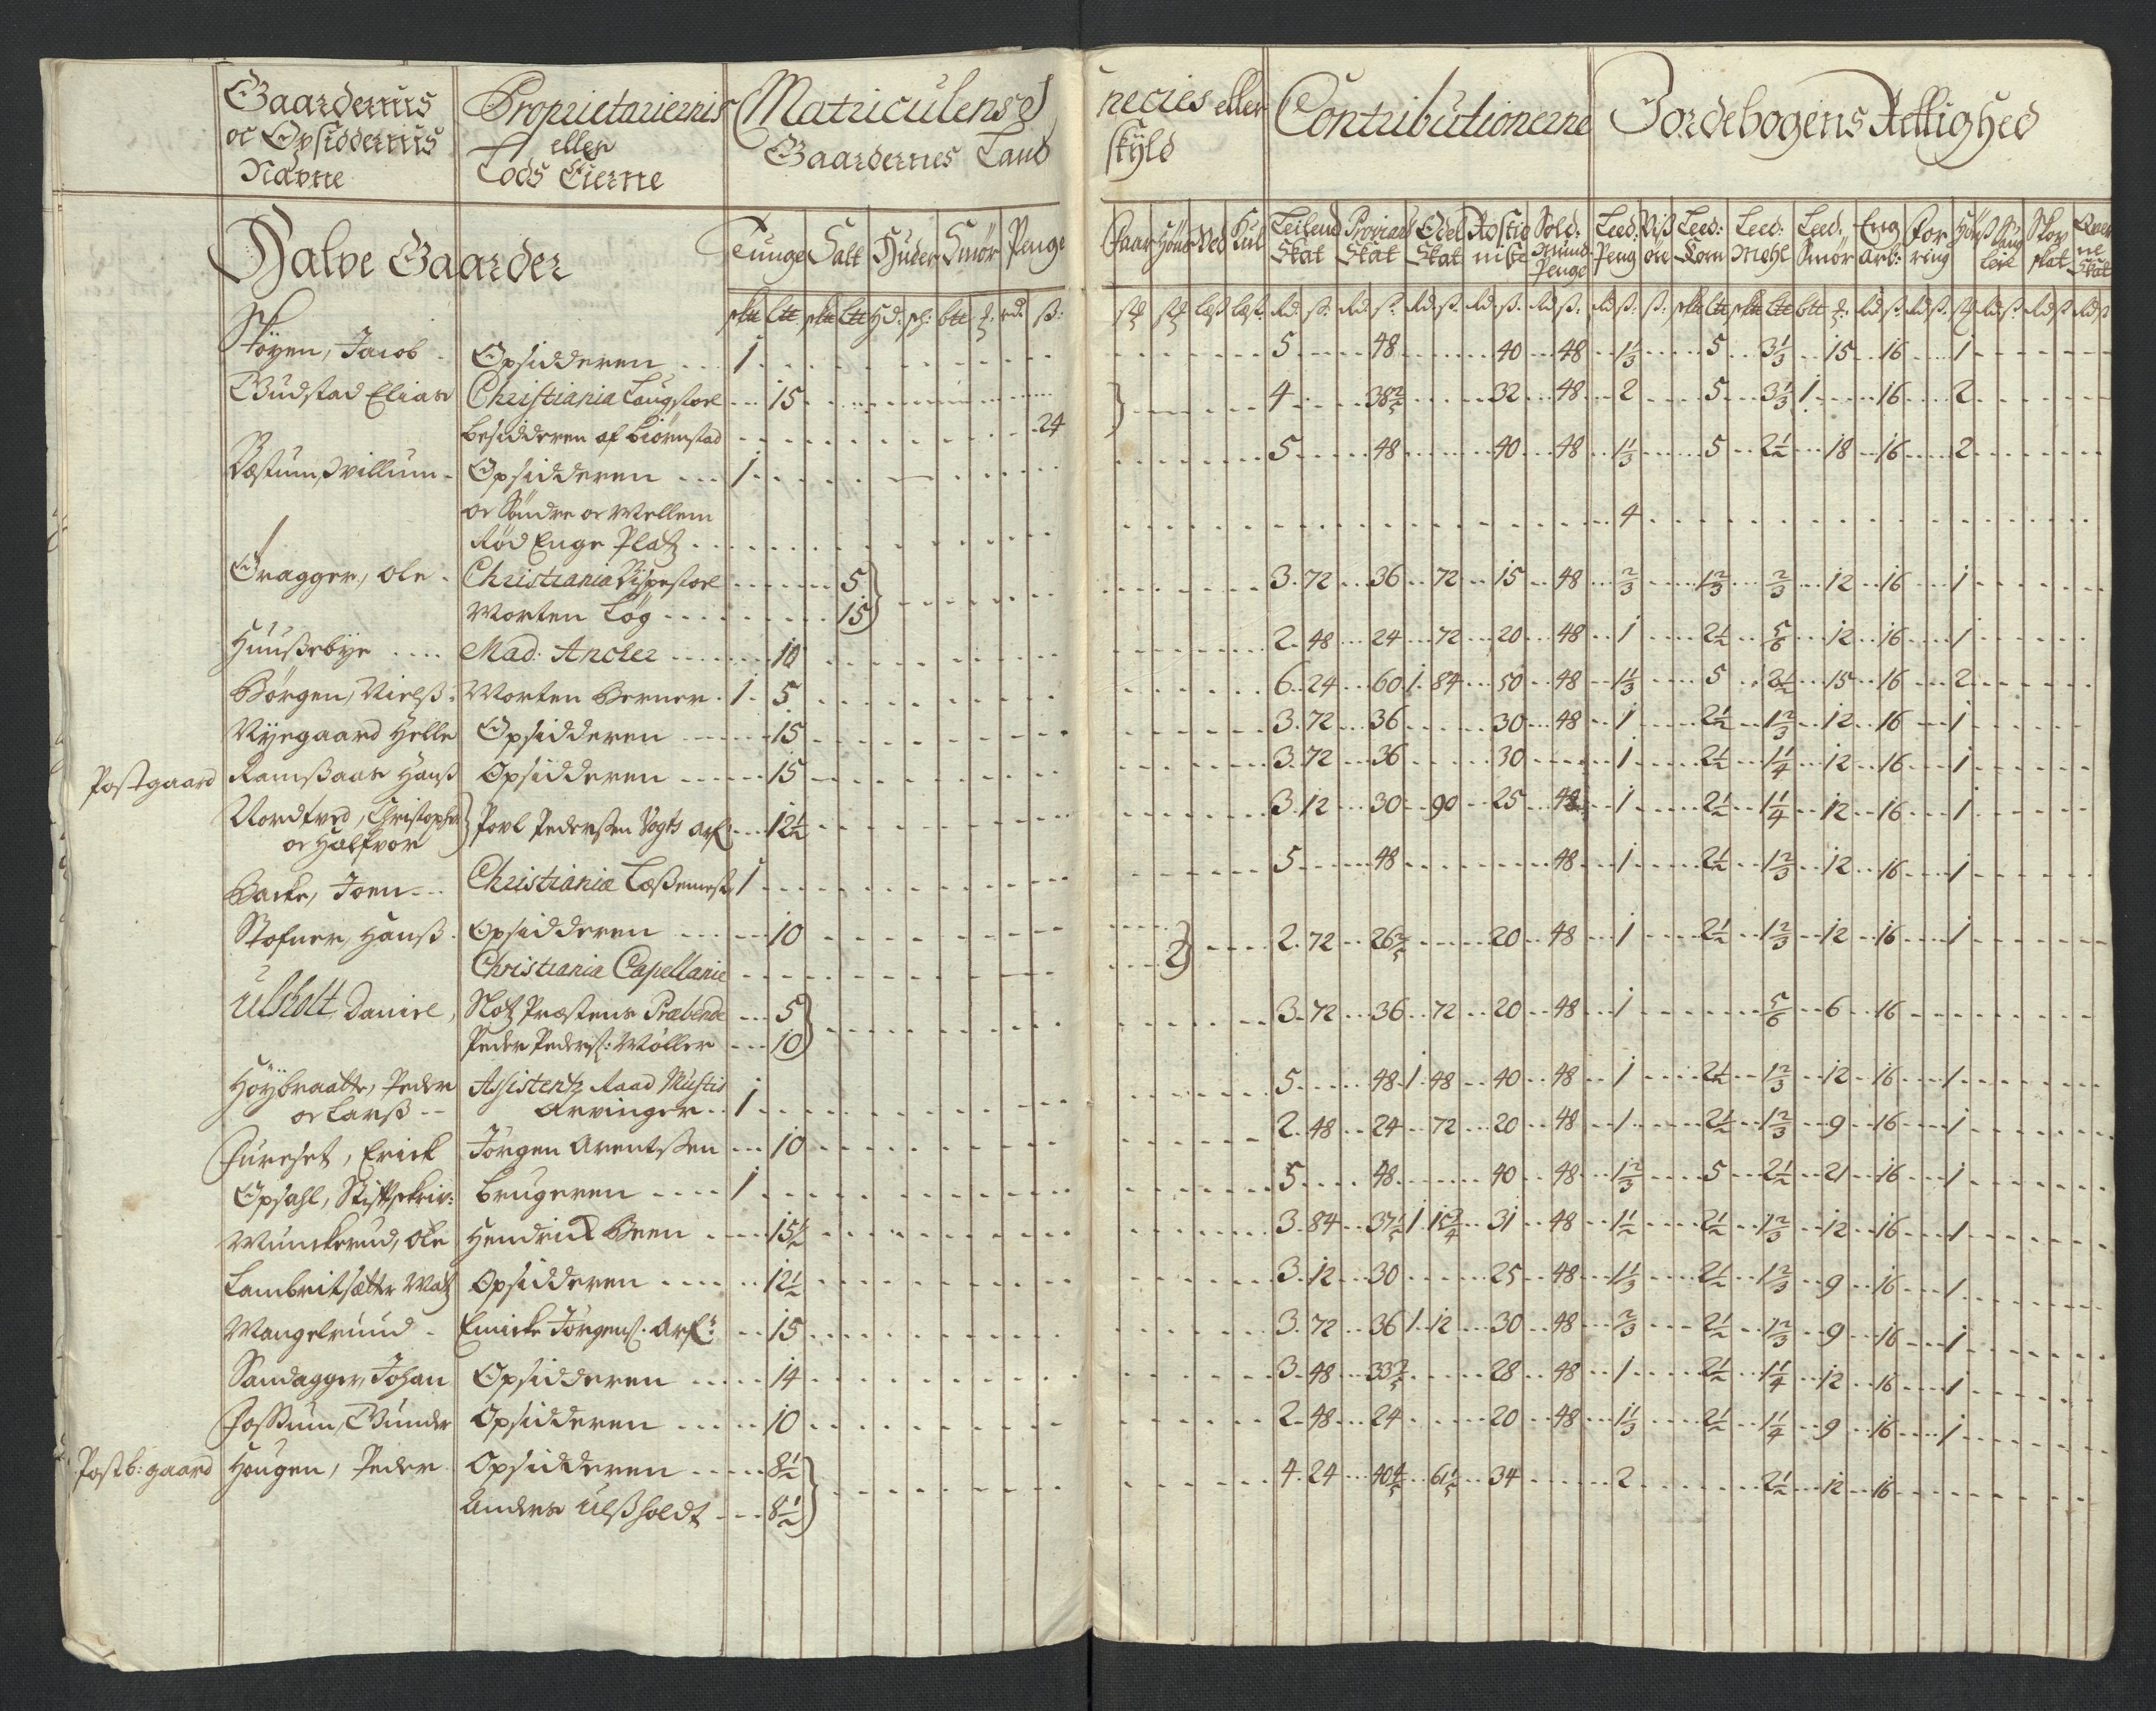 Gaardernis
oc Opsiddernis
Nafne
Proprietariernis
eller
Lods Eierne
Matriculens
Gaardernes Land
pecies eller
skyld
Contributionerne
Jordebogens Rettighed
Halve Gaarder
Tunge Salt Huder Smör Penge
Faar Höns Ved Kul Leilend Skat Proviand Skat Odel Skat Rostieniste Sold: Mund Penge Leed: Peng Viß öre Leed: Korn Leed: Mehl Leed: Smör Eng Arb: Foring Skov skat Qverne Skat
Skøyen, Jacob - Opsidderen ... 1 5 48 40 48 1 1/3 5 3 1/3 15 16 1
Gudstad Elias Christiania Laugstoel 15 4 38 2/5 32 48 2 5 3 1/3 1 16 2
besidderen af biørnstad 24
Væstum, Willum - Opsidderen ... 1 5 48 40 48 1 1/3 5 2 1/2 18 16 2
oc Søndre oc Mellem
Rød Enge Platz 4
Gragger, Ole - Christiania Bispestoel 5 3 72 36 72 15 48 2/3 1 2/3 2/3 12 16 1
Morten Løg 15
Huußebye .... Mad: Ancher 10 2 48 24 72 20 48 1 2 1/2 5/6 12 16 1
Børgen, Nielß. Morten Berner. 1 5 6 24 60 1 84 50 48 1 1/3 5 2 1/2 15 16 2
Nyegaard Helle Opsidderen 15 3 72 36 30 48 1 2 1/2 1 2/3 12 16 1
Postgaard Ramßaas Hanß Opsidderen 15 3 72 36 30 1 2 1/2 1 1/4 12 16 1
Nordtved, Christopher
oc Halfvor Povl Pederßen Vogts Arf: 12 1/2 3 12 30 90 25 48 1 2 1/2 1 1/4 12 16 1
Backe, Joen - - Christiania Læßemest: 1 5 48 48 1 2 1/2 1 2/3 12 16 1
Stofner, Hanß. Opsidderen 10 2 72 26 2/5 20 48 1 2 1/2 1 2/3 12 16 1
Christiania Capellanie 2
Ulsholt Daniel, Slotz Præstens Præbende 5 3 72 36 72 20 48 1 5/6 6 16
Peder Peders: Møller 10
Høybraatte, Peder
oc Larß - - Assistentz Raad Mustis
Arvinger .. 1 5 48 1 48 40 48 1 2 1/2 1 2/3 12 16 1
Fureset, Erick Jørgen Arentßen 10 2 48 24 72 20 48 1 2 1/2 1 2/3 9 16 1
Opsahl, Stiftskriv: brugeren .... 1 5 48 40 48 1 2/3 5 2 1/2 21 16 1
Munckerud, Ole Hendrick Been 15 1/2 3 84 37 1/5 1 15 3/4 31 48 1 1/2 2 1/2 1 2/3 12 16 1
Lambritsætter Matz Opsidderen 12 1/2 3 12 30 25 48 1 1/3 2 1/2 1 2/3 9 16 1
Mangelruud - Enicke Jørgens: Arf: 15 3 72 36 1 12 30 48 2/3 2 1/2 1 2/3 9 16 1
Sandagger, Johan Opsidderen 14 3 48 33 3/5 28 48 1 2 1/2 1 1/4 12 16 1
Fossum, Gunder Opsidderen 10 2 48 24 20 48 1 1/3 2 1/2 1 1/4 9 16 1
Postb: gaard Hougen, Peder Opsidderen 8 1/2 4 24 40 4/5 61 1/5 34 2 2 1/2 12 16
Anders Ulßholdt 8 1/2